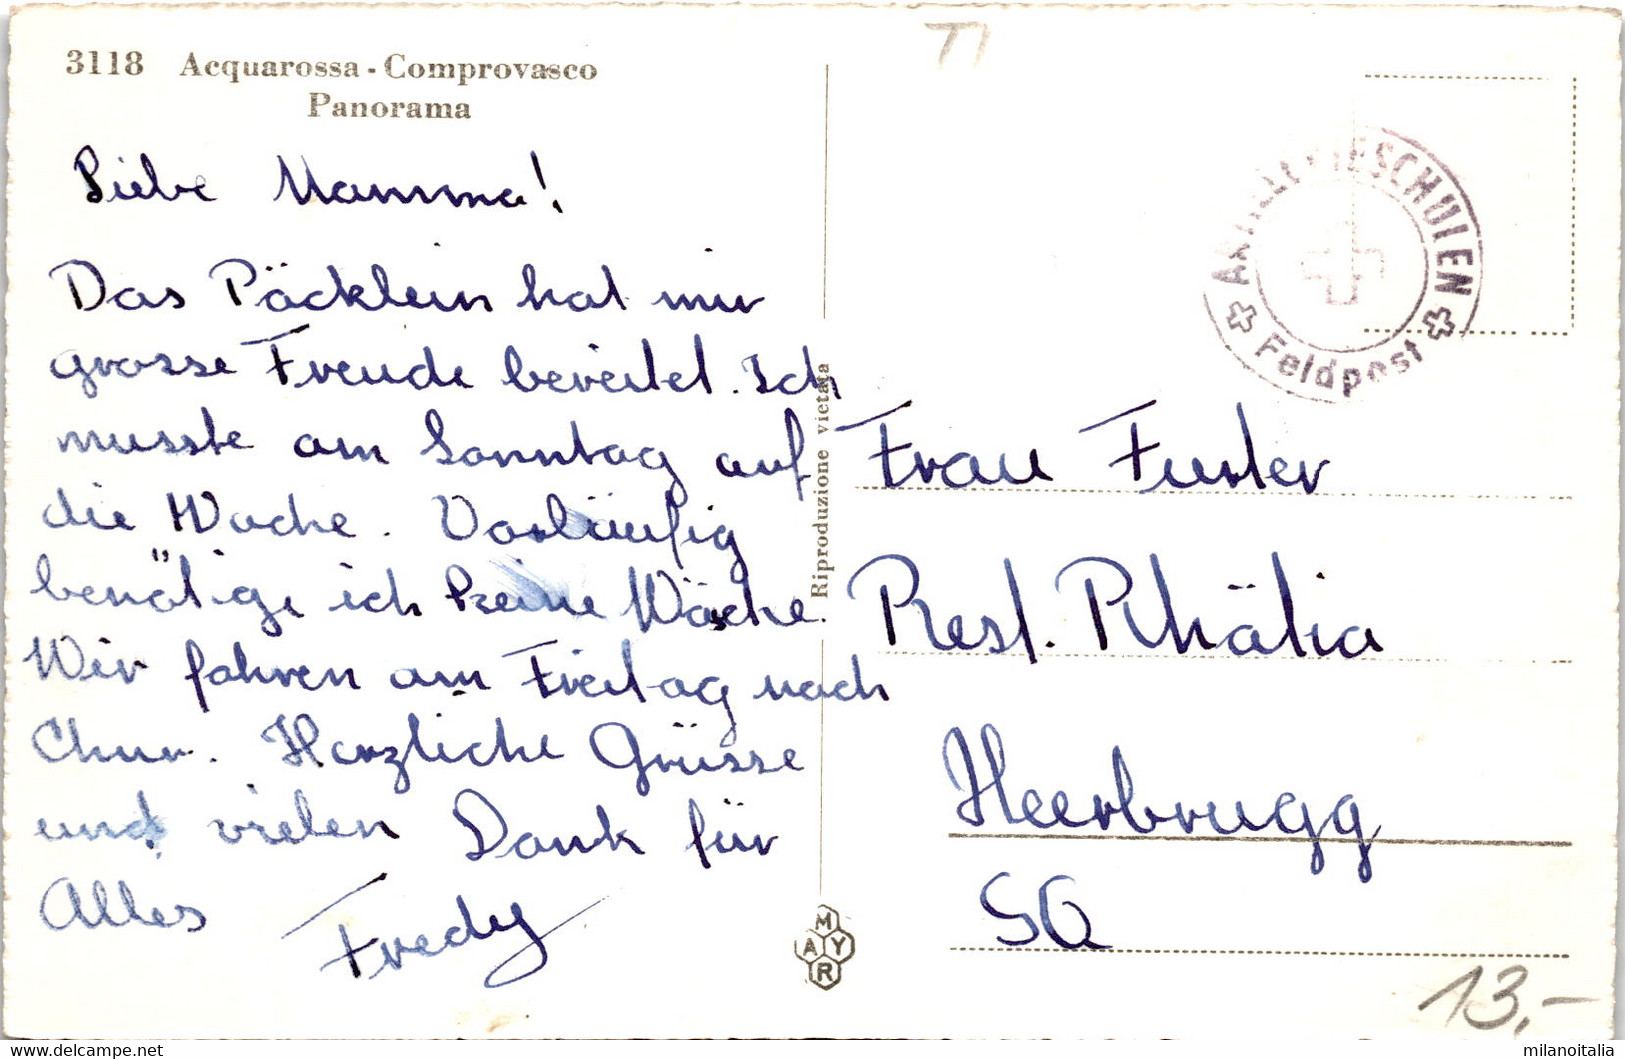 3118 Acquarossa - Comprovasco
Panorama
Liebe Mamma!
Das Päcklein hat mir
grosse Freude bereitet. Ich
musste am Sonntag auf
die Wache. Vorläufig
benötige ich keine Wäsche.
Wir fahren am Freitag nach
Chur. Herzliche Grüsse
und vielen Dank für
Alles
Fredy
Riproduzione vietata
MAYR
TI
ARTILLERIESCHULEN
Feldpost
Frau Furler
Rest. Rhätia
Heerbrugg
SG
13.-
milanoitalia